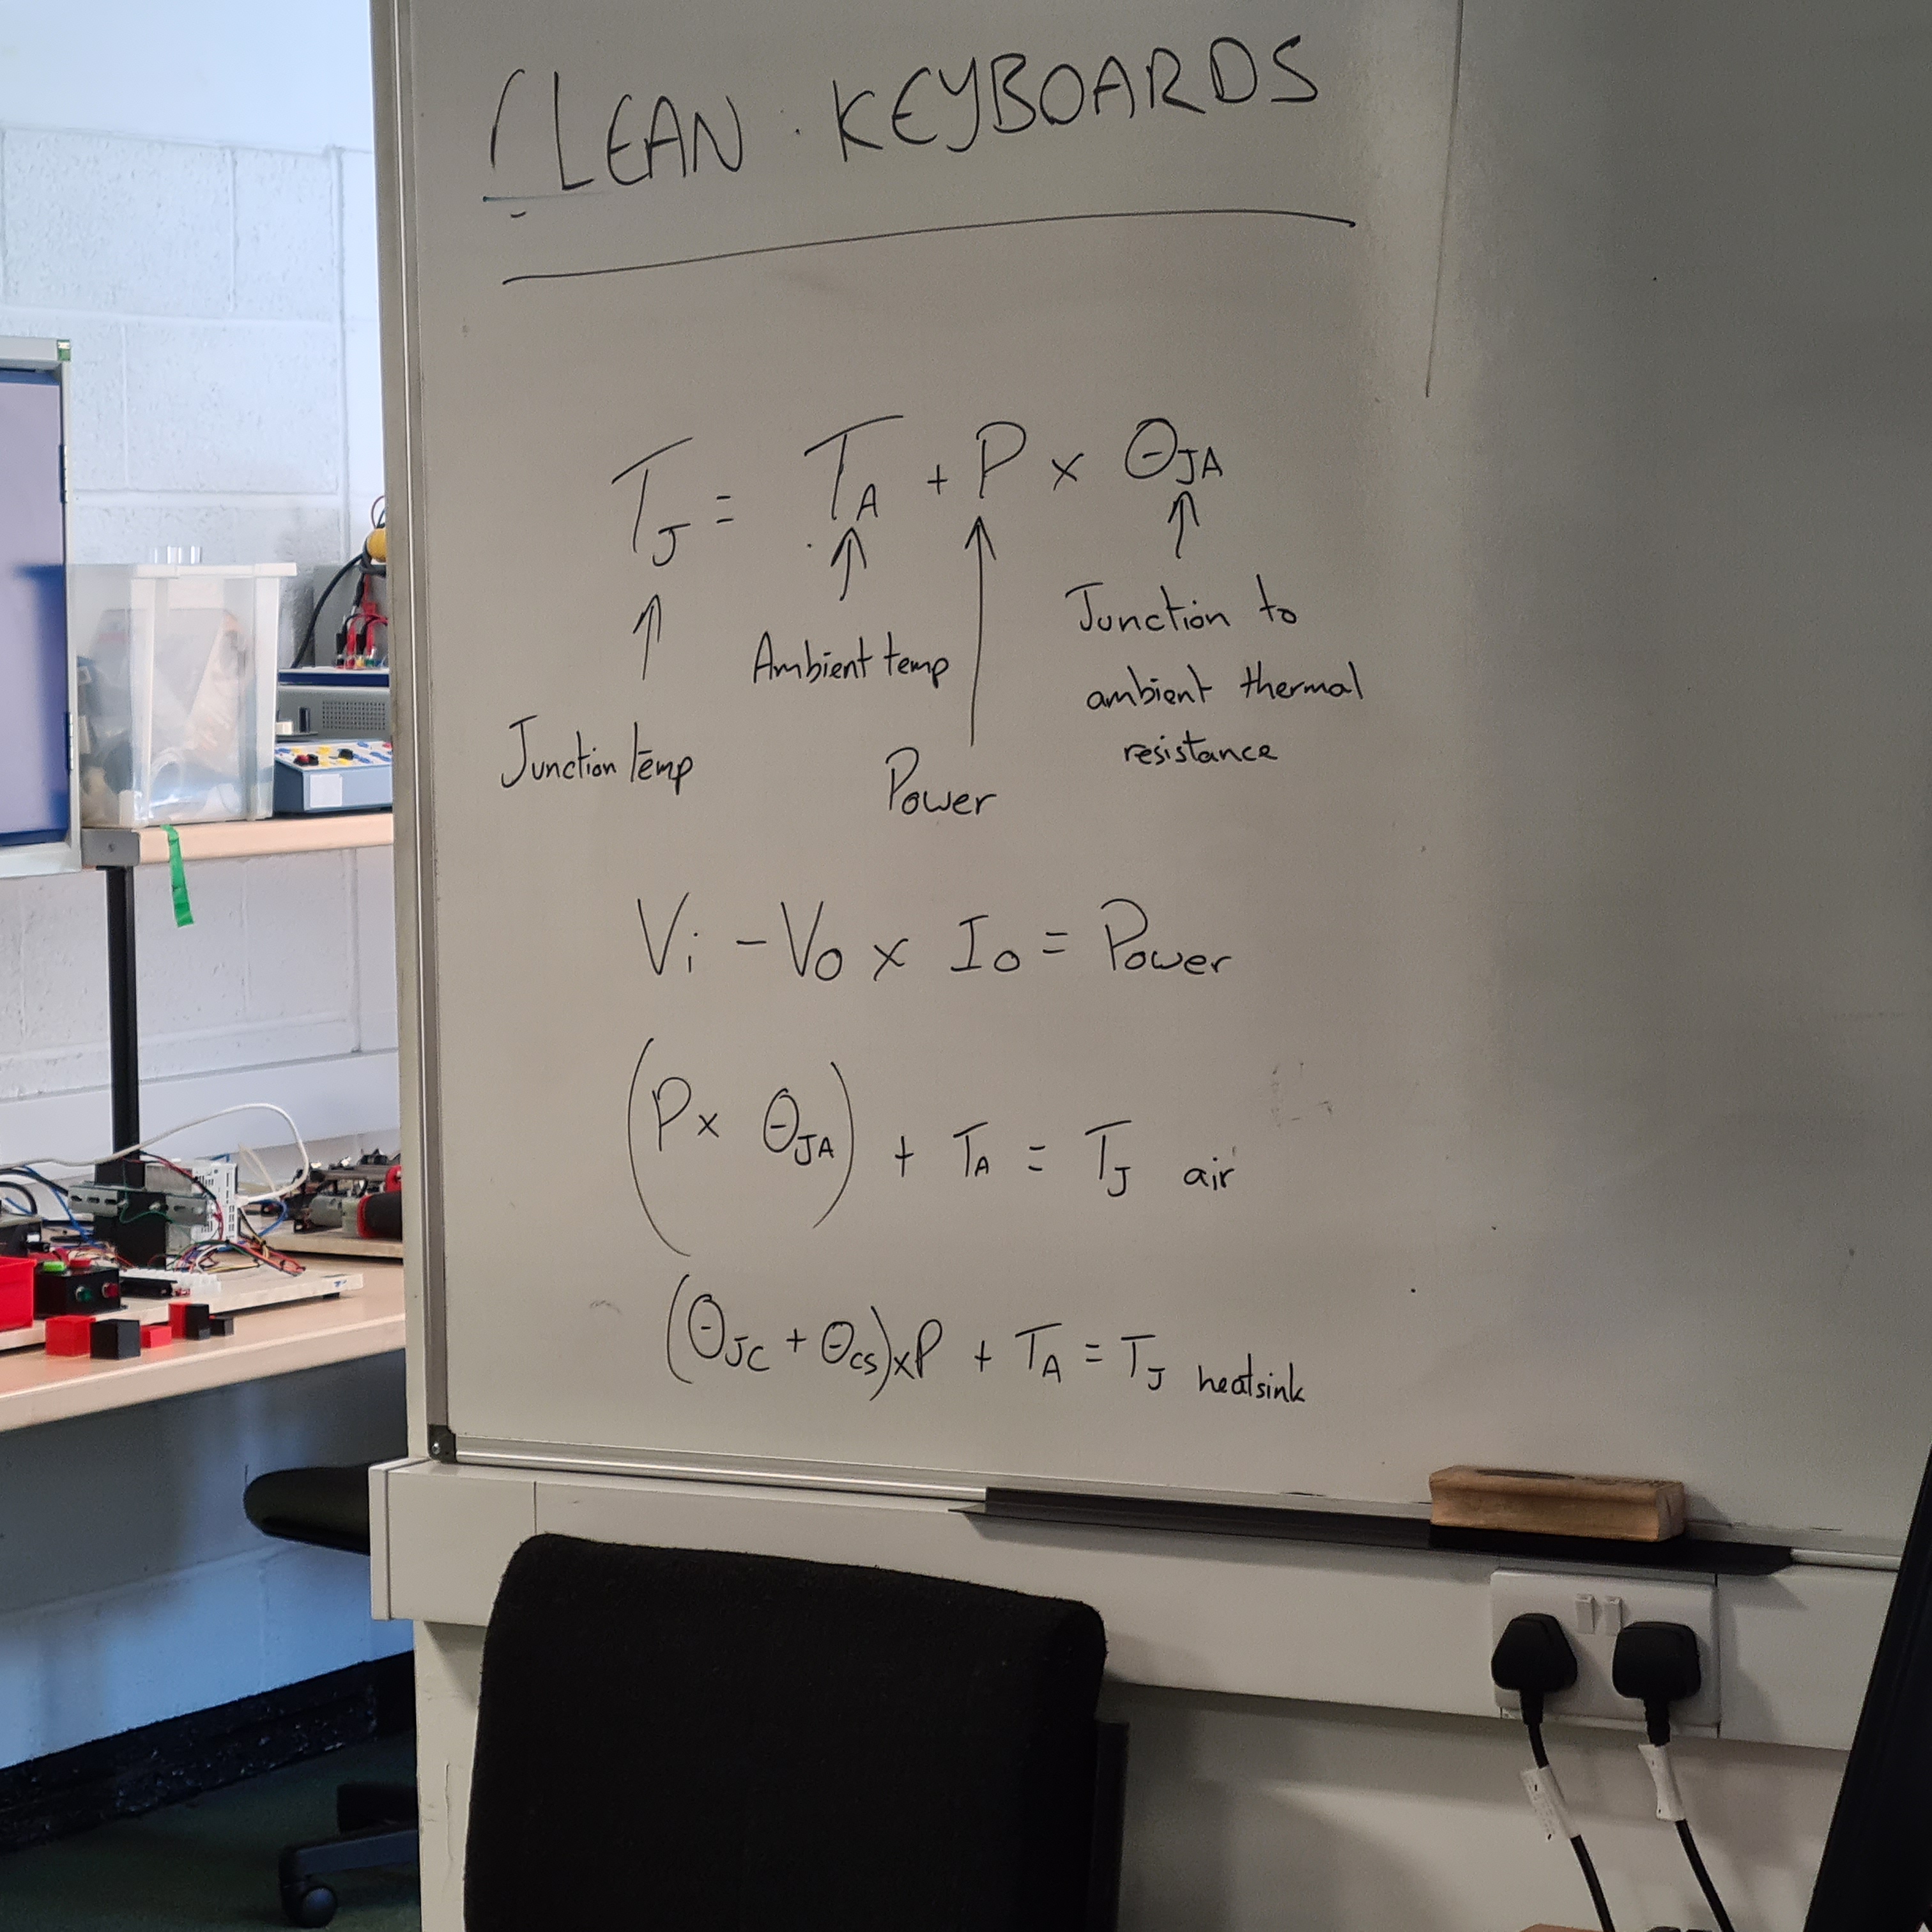 CLEAN KEYBOARDS
TJ = TA + P x ΘJA
Junction temp
Ambient temp
Power
Junction to
ambient thermal
resistance
Vi - Vo x Io = Power
(P x ΘJA) + TA = TJ air
(ΘJC + ΘCS) x P + TA = TJ heatsink